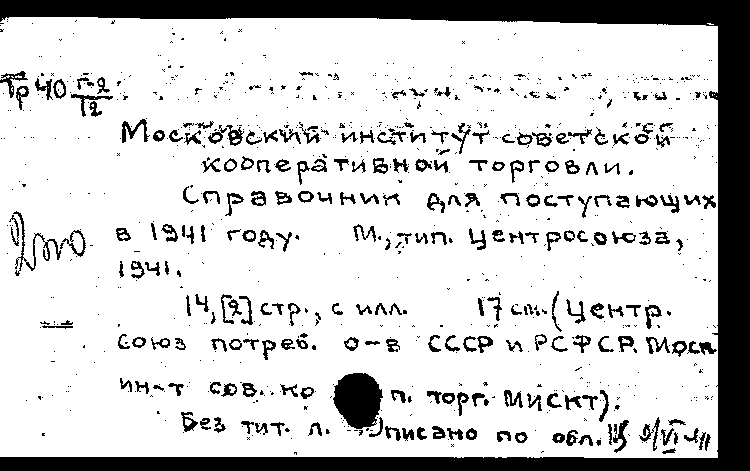 Тр 40 Г-2/12
Московский институт советской
кооперативной торговли.
Справочник для поступающих
в 1941 году. М., тип. Центросоюза,
1941.
14, [2] стр., с илл. 17 см. (Центр.
союз потреб. о-в СССР и РСФСР. Моск
ин-т сов. ко п. торг. МИСКТ).
Без тит. л. Описано по обл.